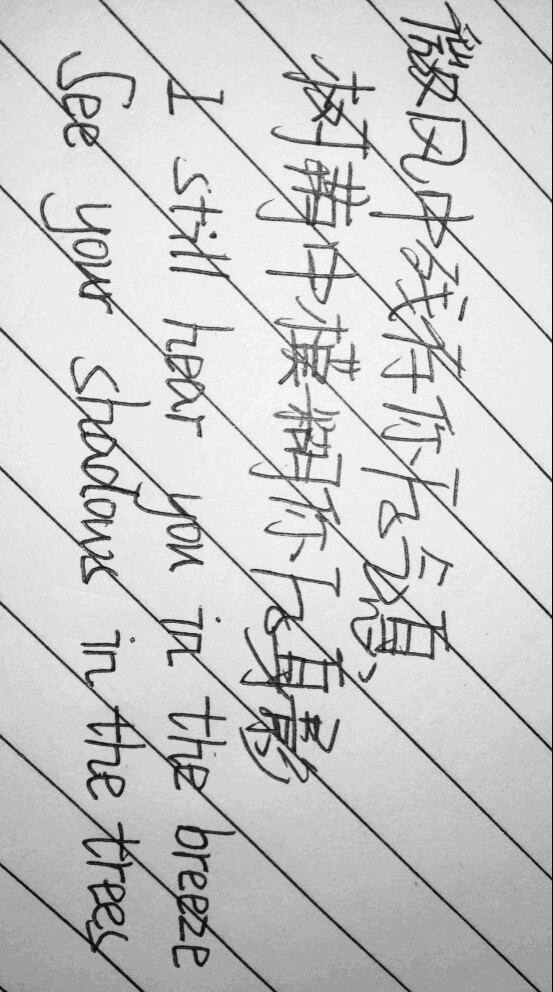 微风中残存你的气息
树荫中模糊你的身影
I still hear you in the breeze
See your shadows in the trees